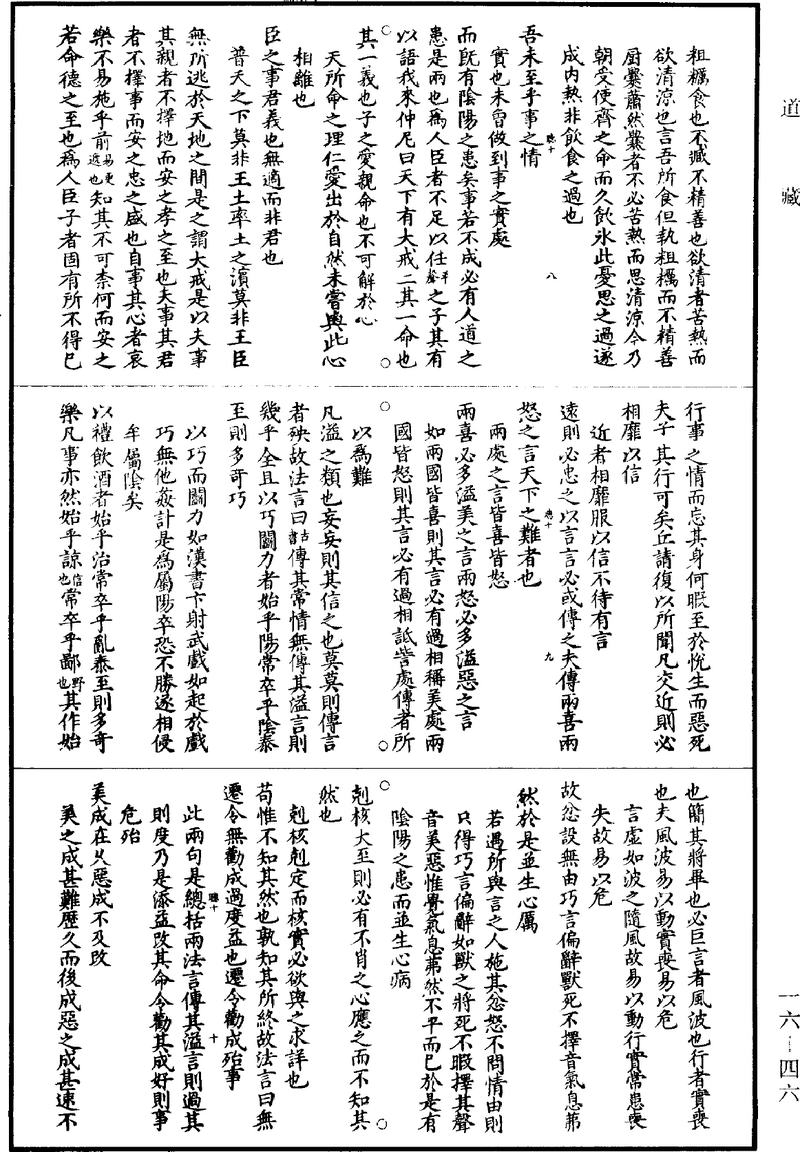 道藏
粗糲食也不臧不精善也欲清者苦熱而
欲清涼也言吾所食但執粗糲而不精善
厨爨蕭然爨者不必苦熱而思清涼今乃
朝受使齊之命而夕飲氷此憂思之過遂
成内熱非飲食之過也
吾未至乎事之情
實也未曾做到事之實處
而旣有陰陽之患矣事若不成必有人道之
患是兩也爲人臣者不足以任平聲之子其有
以語我來仲尼曰天下有大戒二其一命也
其一義也子之愛親命也不可解於心
天所命之理仁愛出於自然未嘗與此心
相離也
臣之事君義也無適而非君也
普天之下莫非王土率土之濱莫非王臣
無所逃於天地之間是之謂大戒是以夫事
其親者不擇地而安之孝之至也夫事其君
者不擇事而安之忠之盛也自事其心者哀
樂不易施乎前易更遞也知其不可柰何而安之
若命德之至也爲人臣子者固有所不得已
行事之情而忘其身何暇至於悅生而惡死
夫子其行可矣丘請復以所聞凡交近則必
相靡以信
近者相靡服以信不待有言
遠則必忠之以言言必或傳之夫傳兩喜兩
怒之言天下之難者也
兩處之言皆喜皆怒
兩喜必多溢美之言兩怒必多溢惡之言
如兩國皆喜則其言必有過相稱美處兩
國皆怒則其言必有過相詆訾處傳者所
以爲難
凡溢之類也妄妄則其信之也莫莫則傳言
者殃故法言曰古書傳其常情無傳其溢言則
幾乎全且以巧鬭力者始乎陽常卒乎陰泰
至則多奇巧
以巧而鬭力如漢書卞射武戲如起於戲
巧無他姦計是爲屬陽卒恐不勝遂相侵
牟屬陰矣
以禮飲酒者始乎治常卒乎亂泰至則多奇
樂凡事亦然始乎諒信也常卒乎鄙野也其作始
也簡其將畢也必巨言者風波也行者實喪
也夫風波易以動實喪易以危
言虛如波之隨風故易以動行實常患喪
失故易以危
故忿設無由巧言偏辭獸死不擇音氣息茀
然於是並生心厲
若遇所與言之人施其忿怒不問情由則
只得巧言偏辭如獸之將死不暇擇其聲
音美惡惟覺氣息茀然不平而已於是有
陰陽之患而並生心病
剋核大至則必有不肖之心應之而不知其
然也
剋核剋定而核實必欲與之求詳也
苟惟不知其然也孰知其所終故法言曰無
遷令無勸成過度益也遷令勸成殆事
此兩句是總括兩法言傳其溢言則過其
則度乃是添益改其命令勸其成好則事
危殆
美成在久惡成不及改
美之成甚難歷久而後成惡之成甚速不
一六—四六